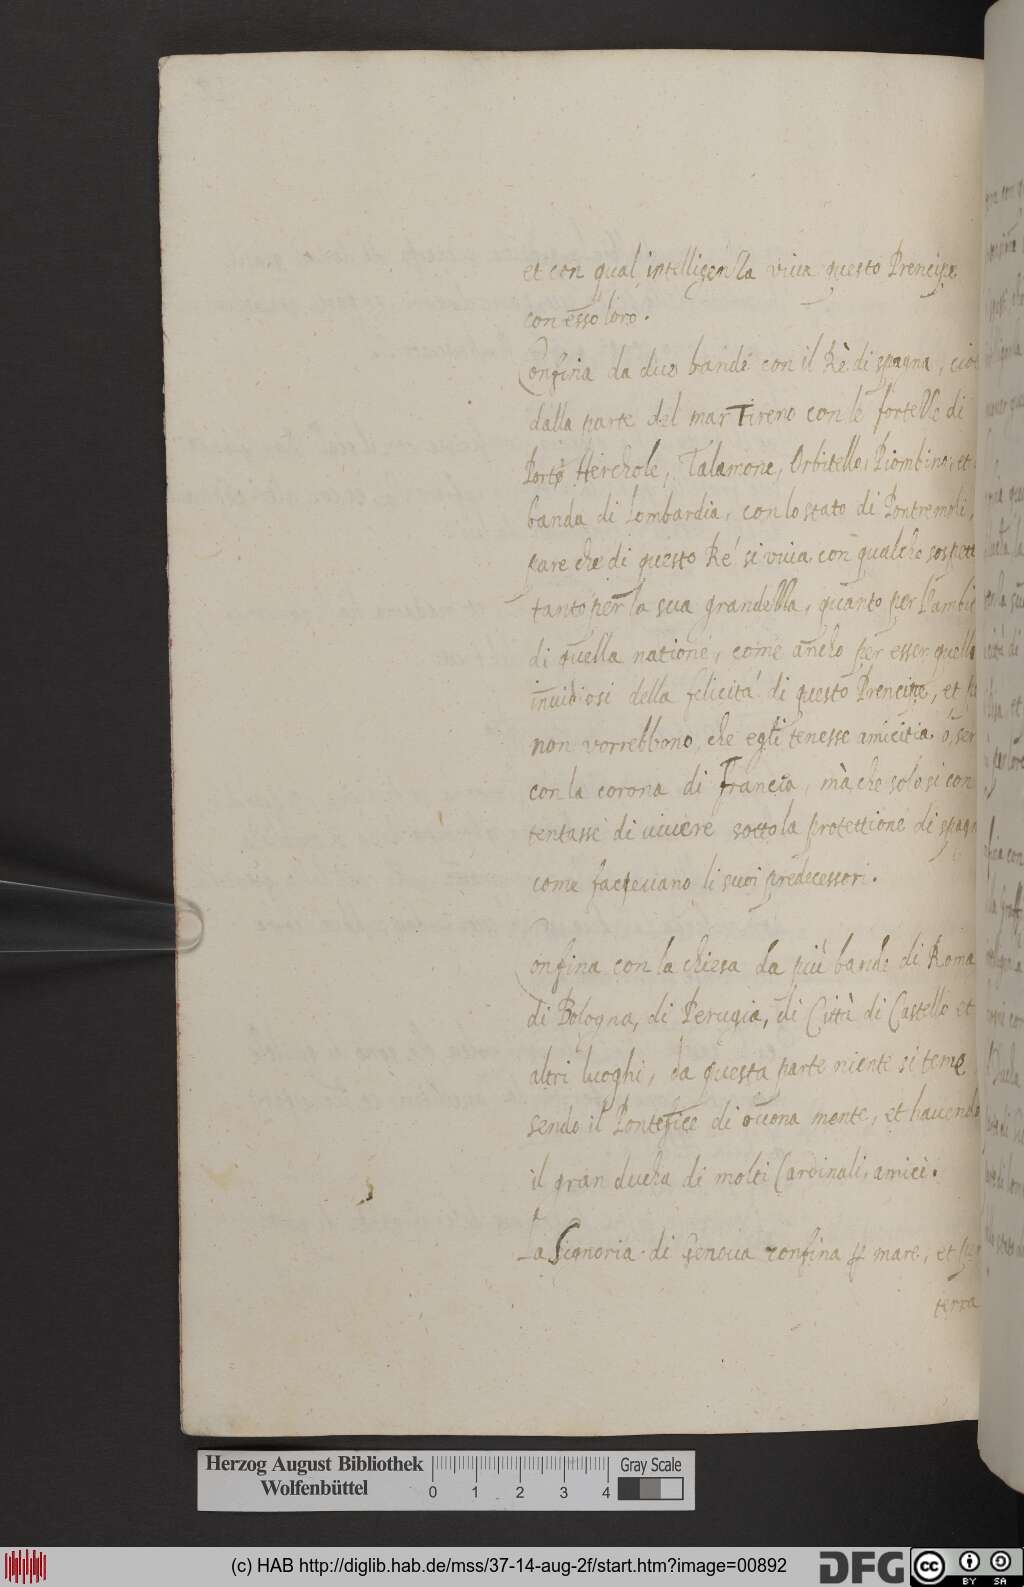 et con qual intelligenza viva questo Prencipe
con esso loro.
Confina da due bande con il Rè di spagna, cioè
dalla parte del mar Tireno con le fortezze di
Porto Herchole, Talamone, Orbitello, Piombino, et
banda di Lombardia, con lo stato di Pontremoli,
pare che di questo Rè si viva con qualche sospett
tanto per la sua grandezza, quanto per l'ambit
di quella natione, come ancho per esser quello
invidiosi della felicità di questo Prencipe, et
non vorrebbono, che egli tenesse amicitia, ò, ser
con la corona di Francia, mà che solo si con
tentasse di vivere sotto la protettione di spagn
come facevano li suoi predecessori.
Confina con la chiesa da più bande di Roma
di Bologna, di Perugia, di Città di Castello et
altri luoghi, da questa parte niente si teme
sendo il Pontefice di buona mente, et havendo
il gran ducha di molti Cardinali amici.
La Signoria di Genova confina per mare, et per
terra
Herzog August Bibliothek
Wolfenbüttel
0 1 2 3 4
Gray Scale
(c) HAB http://diglib.hab.de/mss/37-14-aug-2f/start.htm?image=00892
DFG
cc BY SA